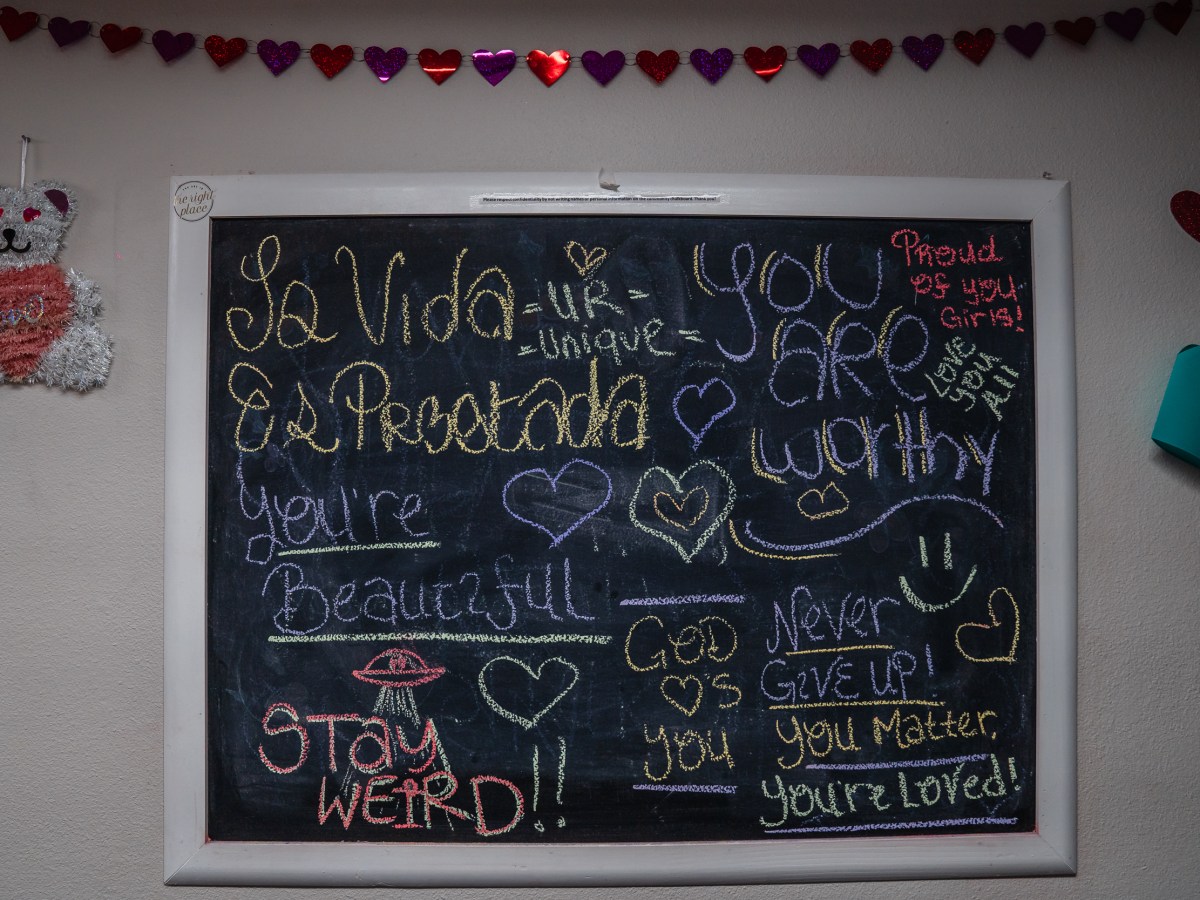 La Vida
Es Prestada
= UR =
= Unique =
You
are
worthy
Proud
of you
Girls!
Love
you
All
You're
Beautiful
GOD
♡'s
you
Never
Give up!
You Matter.
You're Loved!
Stay
Weird!!
right
place